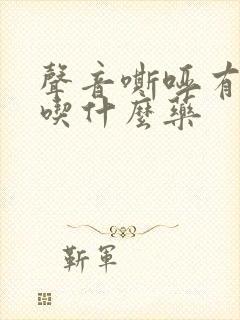 聲音嘶啞有
喫什麼藥
靳軍